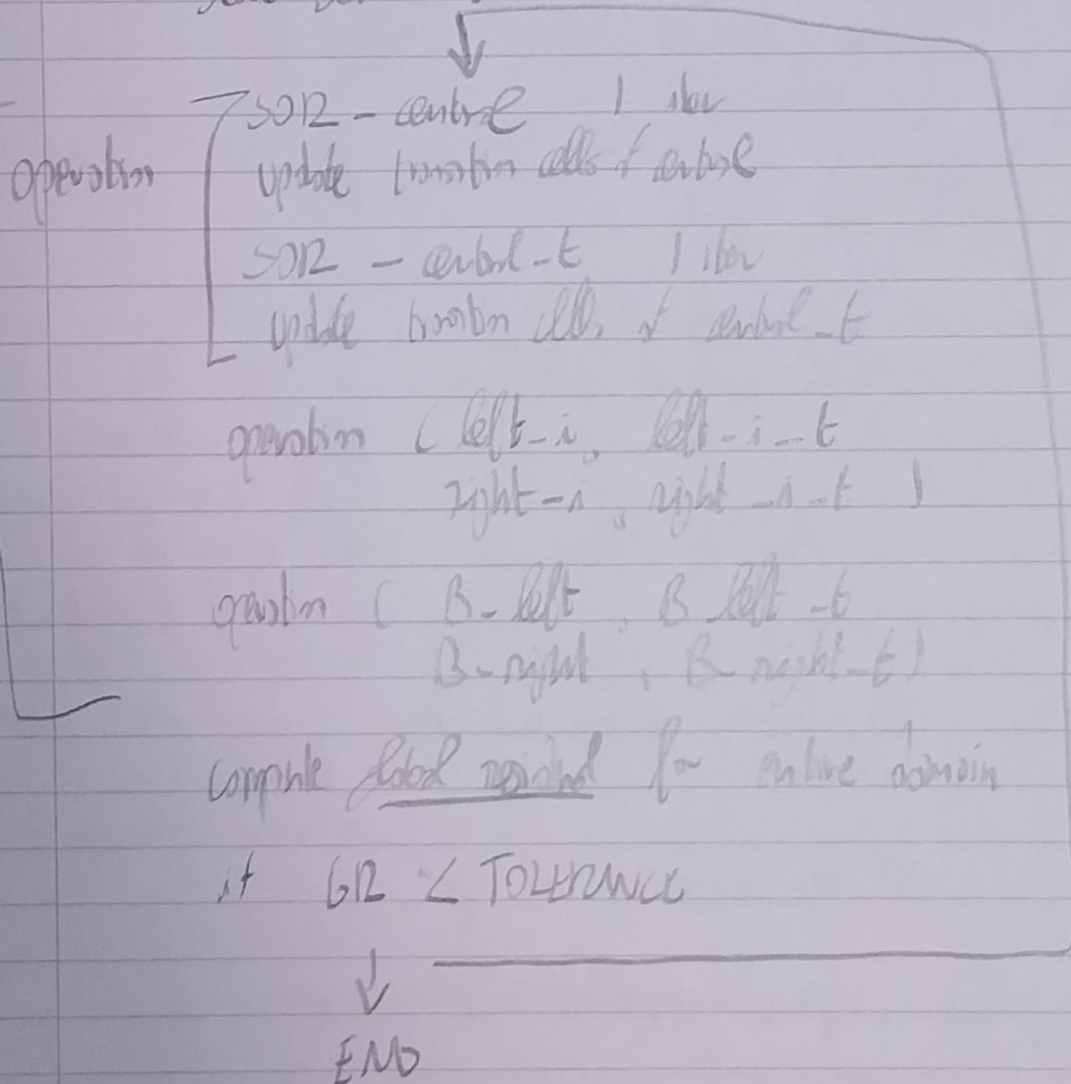 SOR - centre 1 iter
operation
update transition cells of centre
SOR - central_t 1 iter
update transition cells of central_t
operation ( left_i, left_i_t
right_i, right_i_t )
operation ( B_left, B_left_t
B_right, B_right_t )
compute global residual for entire domain
if GR < TOLERANCE
END